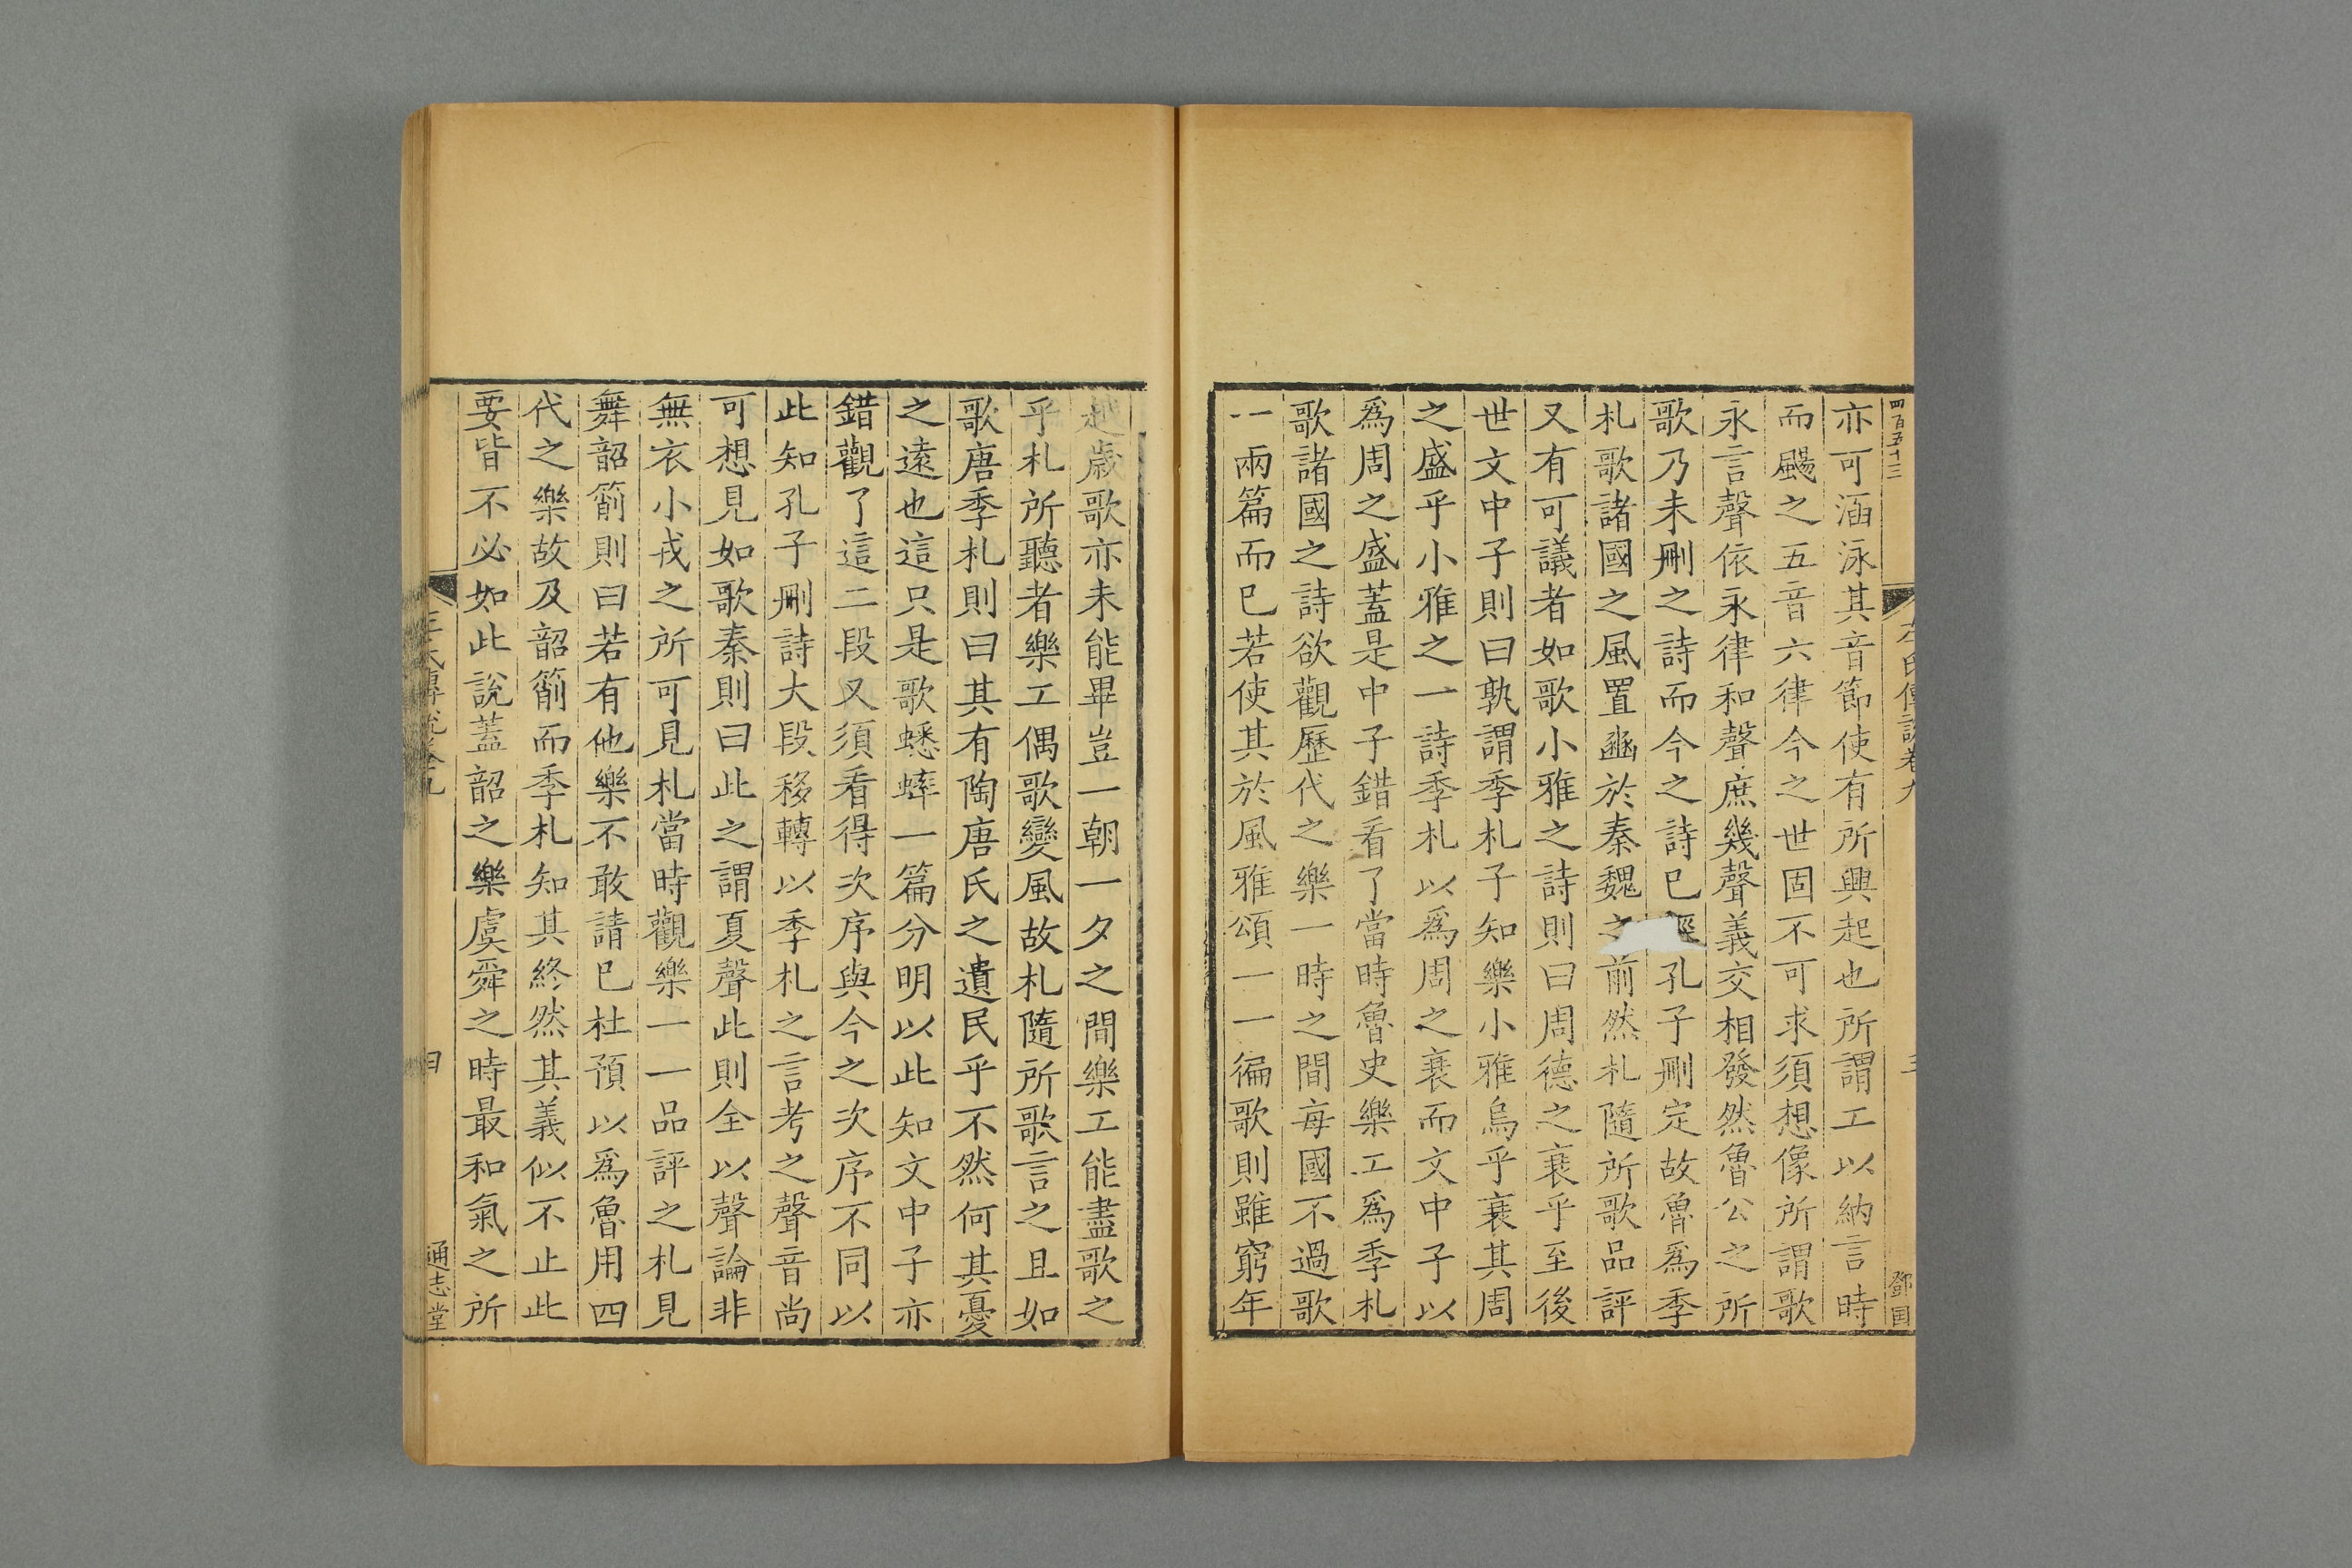 四百五十三
左氏傳說卷九
三
鄧国
亦可涵泳其音節使有所興起也所謂工以納言時
而颺之五音六律今之世固不可求須想像所謂歌
永言聲依永律和聲庶幾聲義交相發然魯公之所
歌乃未刪之詩而今之詩巳經孔子刪定故魯爲季
札歌諸國之風置豳於秦魏之前然札隨所歌品評
又有可議者如歌小雅之詩則曰周德之衰乎至後
世文中子則曰孰謂季札子知樂小雅烏乎衰其周
之盛乎小雅之一詩季札以爲周之衰而文中子以
爲周之盛蓋是中子錯看了當時魯史樂工爲季札
歌諸國之詩欲觀歷代之樂一時之間每國不過歌
一兩篇而巳若使其於風雅頌一一徧歌則雖窮年
越歲歌亦未能畢豈一朝一夕之間樂工能盡歌之
乎札所聽者樂工偶歌變風故札隨所歌言之且如
歌唐季札則曰其有陶唐氏之遺民乎不然何其憂
之遠也這只是歌蟋蟀一篇分明以此知文中子亦
錯觀了這二段又須看得次序與今之次序不同以
此知孔子刪詩大段移轉以季札之言考之聲音尚
可想見如歌秦則曰此之謂夏聲此則全以聲論非
無衣小戎之所可見札當時觀樂一一品評之札見
舞韶箾則曰若有他樂不敢請巳杜預以爲魯用四
代之樂故及韶箾而季札知其終然其義似不止此
要皆不必如此說蓋韶之樂虞舜之時最和氣之所
通志堂